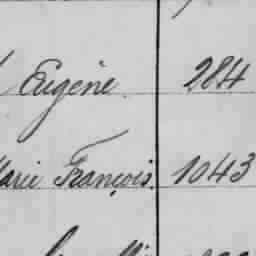 Eugène 284
Marie François 1043